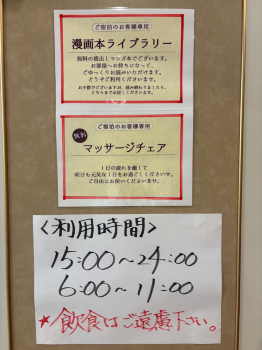 ご宿泊のお客様専用
漫画本ライブラリー
無料の貸出しマンガ本でございます。
お部屋へお持ちになって、
ごゆっくりお読みいただけます。
どうぞご利用くださいませ。
お手数でございますが、読み終わりましたら、
ご宿泊のお客様専用
無料
マッサージチェア
1日の疲れを癒して
明日も元気な1日をお過ごしくださいませ。
ご自由にお使いくださいませ。
<利用時間>
15:00~24:00
6:00~11:00
★飲食はご遠慮下さい。